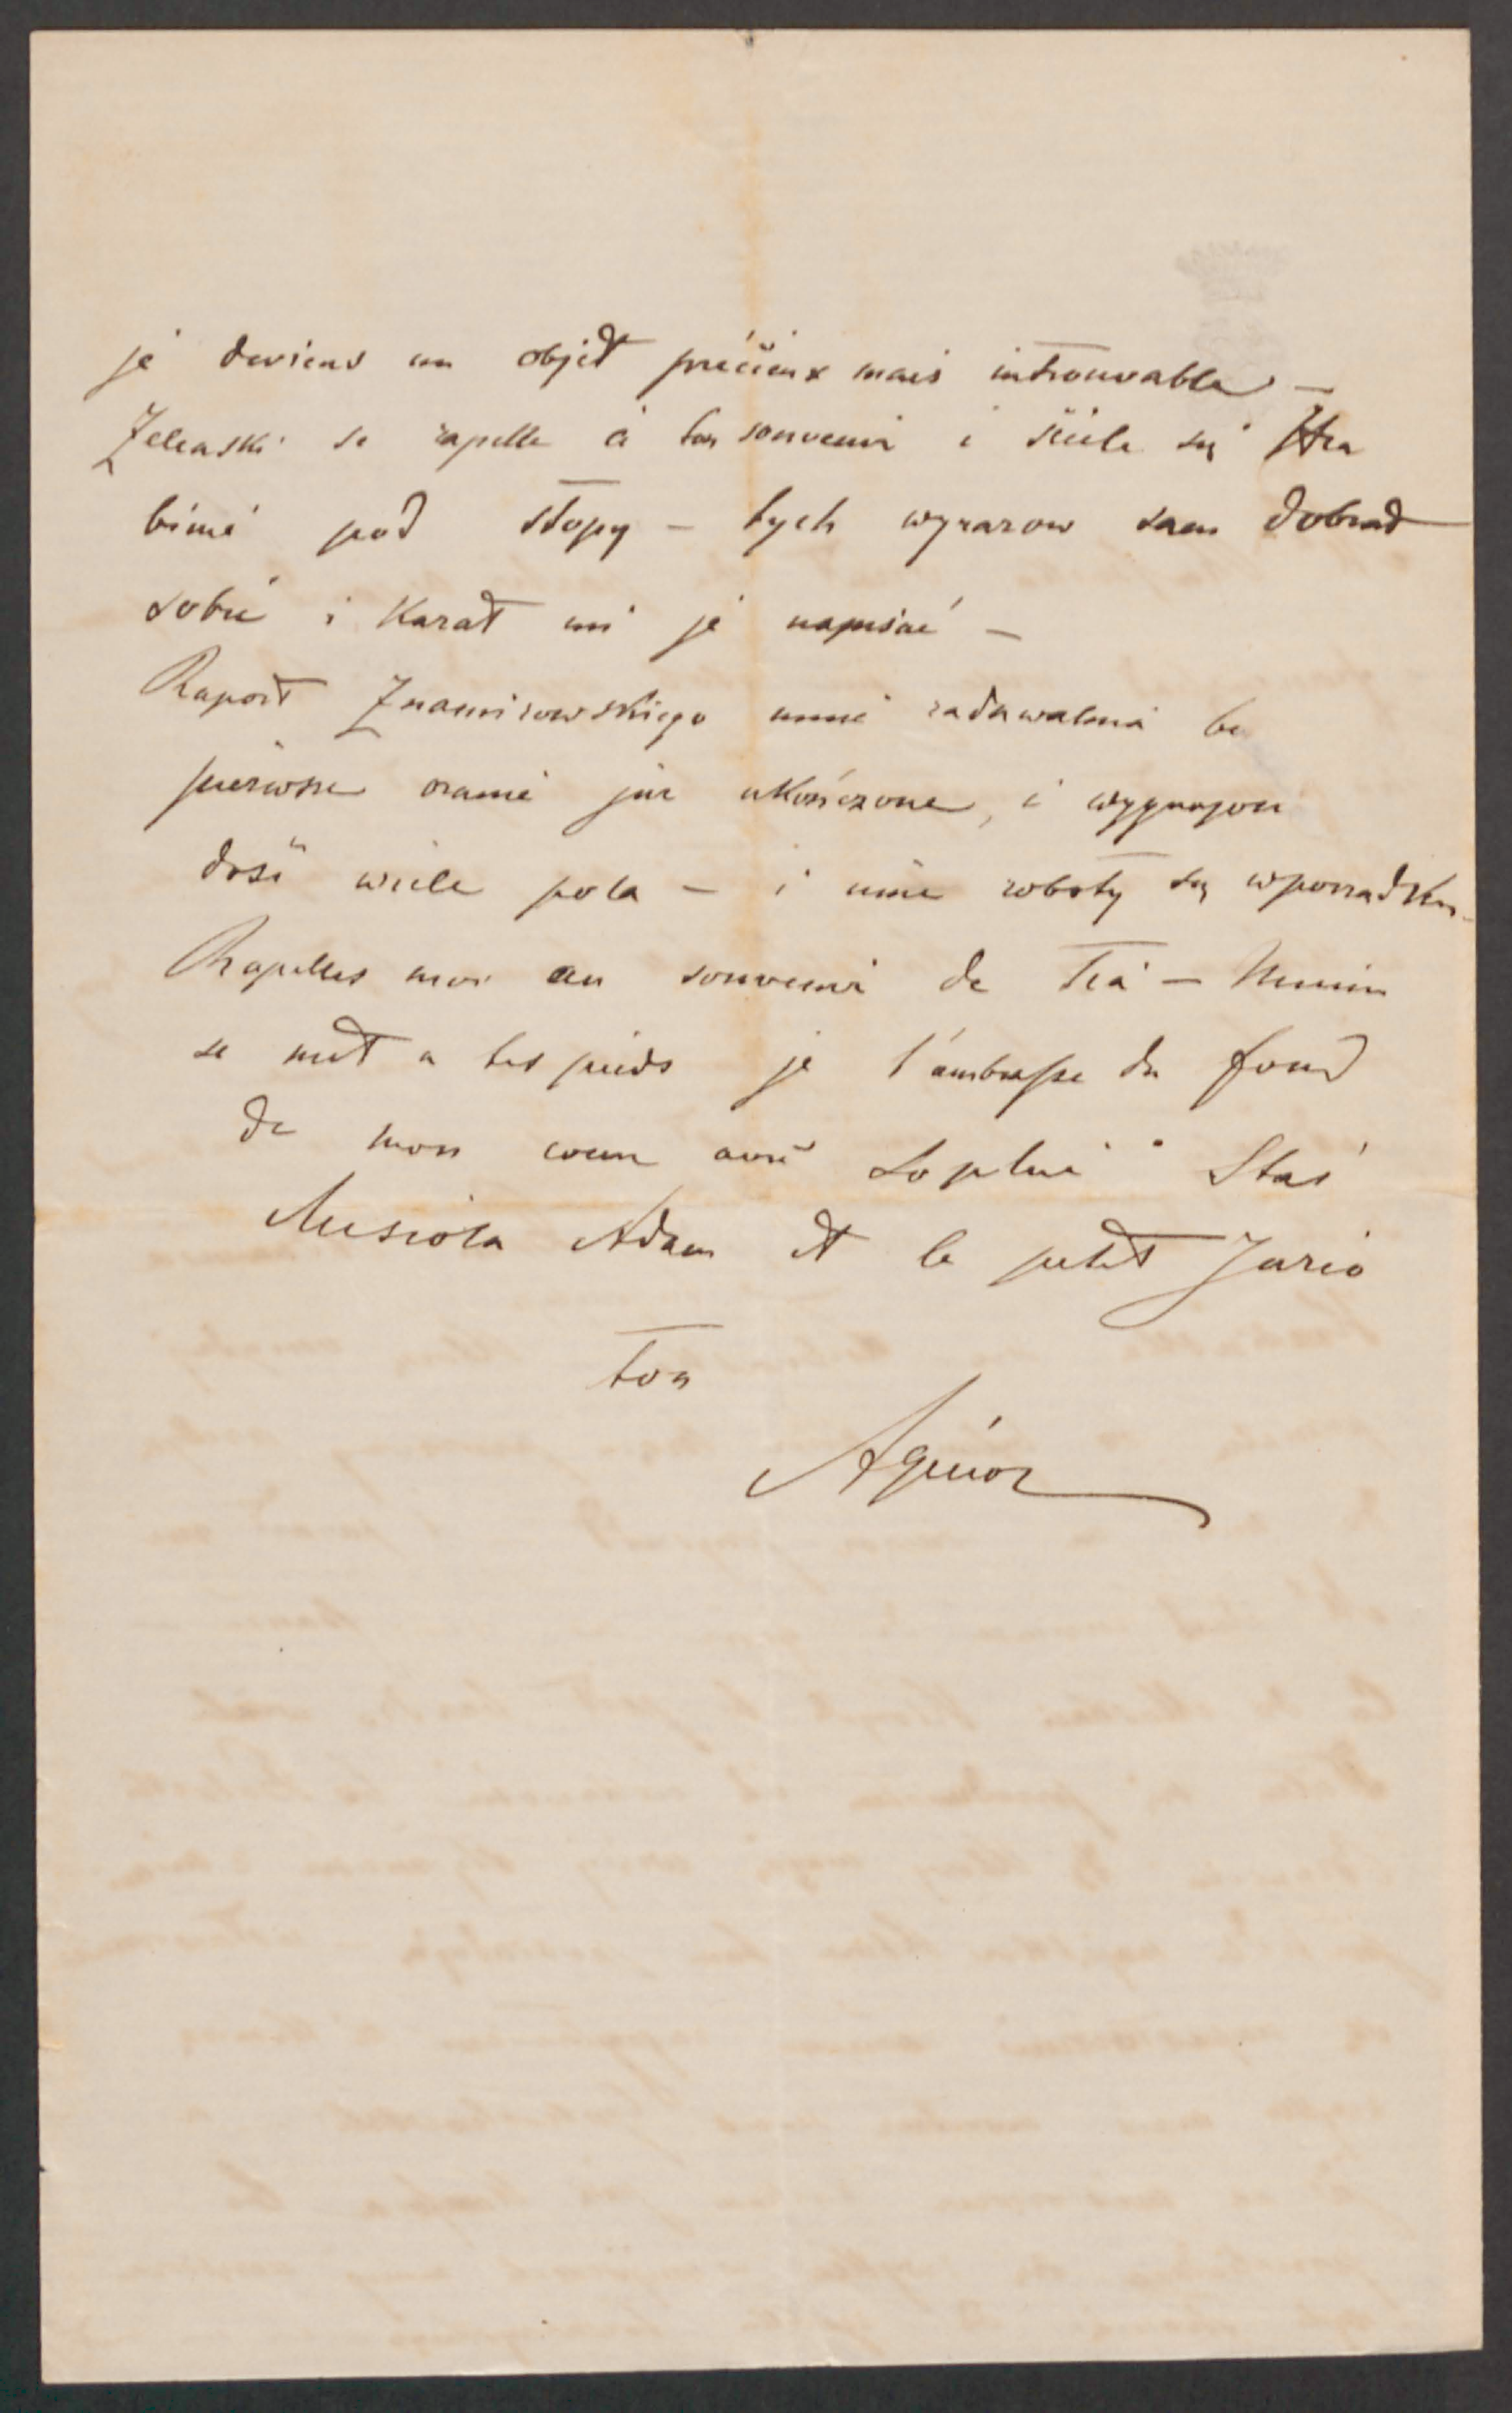 je deviens un objet précieux mais introuvable —
Zeleaski se rapelle à ton souvenir i ściele się Hra
binie pod stopy — tych wyrazow sam dobrał
sobie i Karał mi je napisać —
Raport Znamirowskiego mnie zadawalnia bo
pierwsze oranie już ukończone, i
dość wiele pola — i inne roboty są wporzadku
Rapelles moi au souvenir de Teà —
se met a tes pieds je t'ambrasse du fond
de mon coeur avec Sophie Staś
Misiola Adam et le petit Jozio
Ton
Agénor